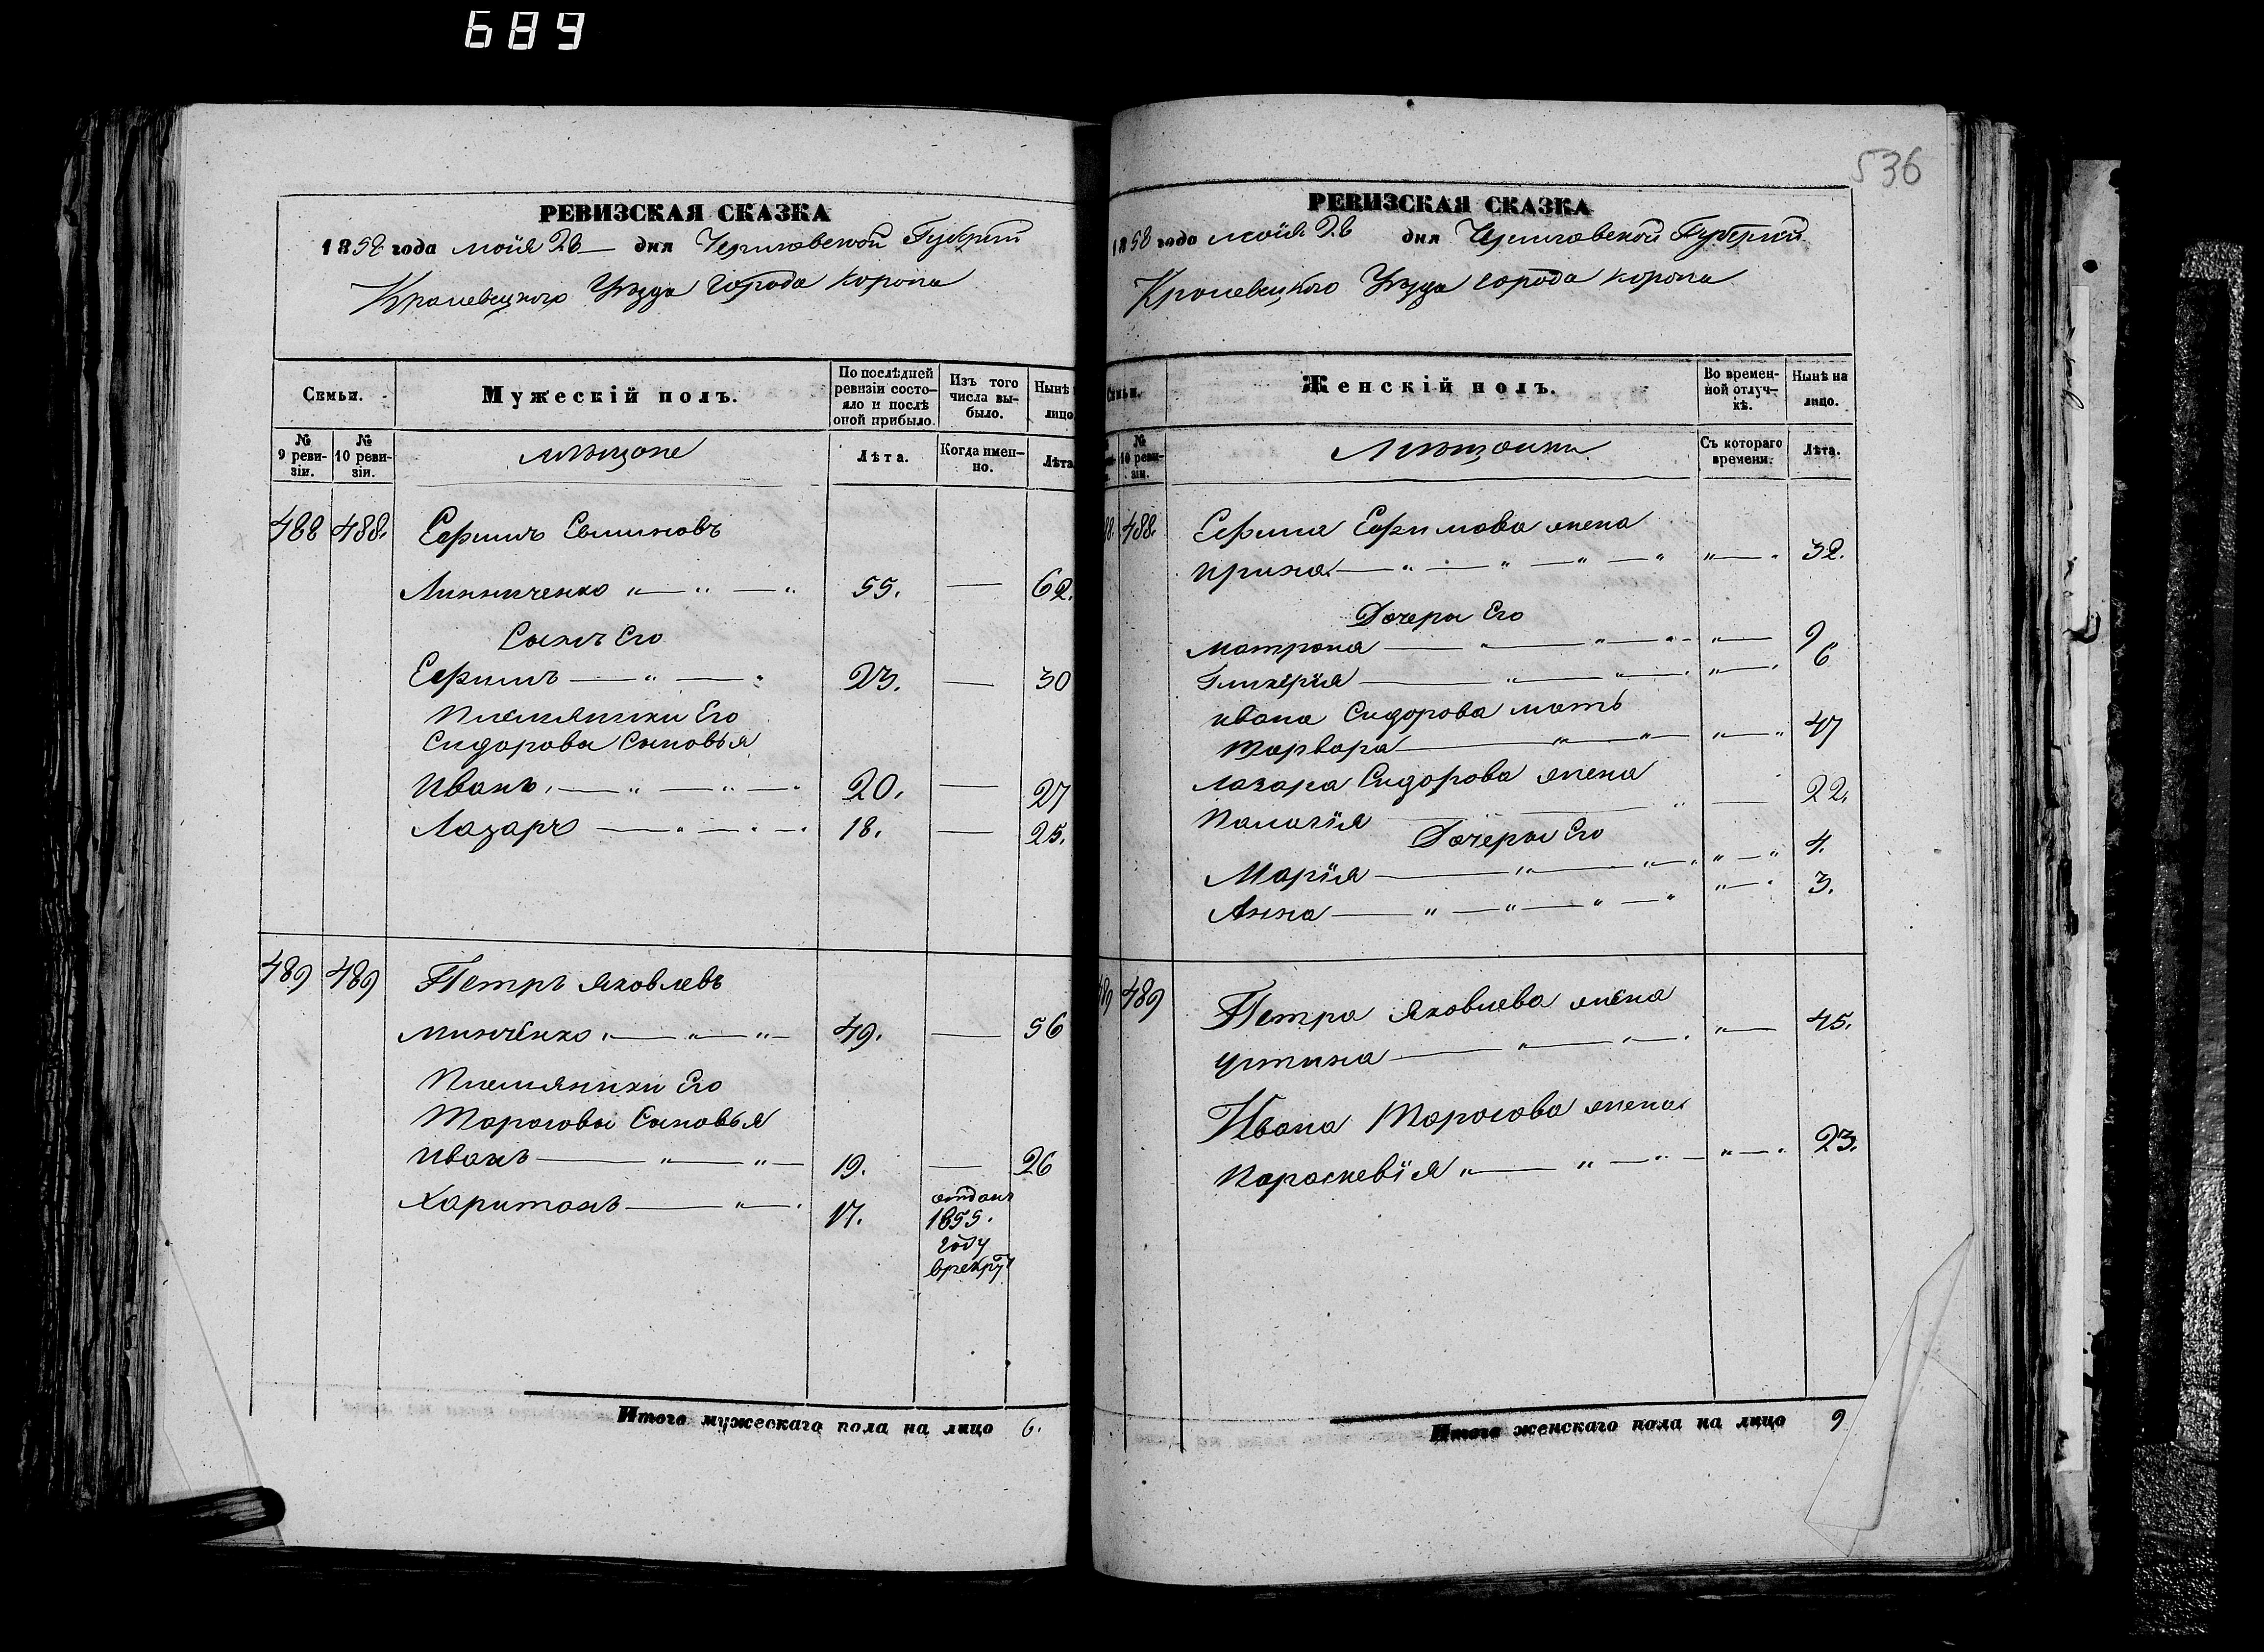 689
РЕВИЗСКАЯ СКАЗКА
1858 года мая 28 дня Черниговской Губернии
Кролевецкого Уезда города Коропа
Семьи.
Мужескій полъ.
По послѣдней ревизіи состояло и послѣ оной прибыло.
Изъ того числа выбыло.
Нынѣ
лицо
№ 9 ревизіи.
№ 10 ревизіи.
мѣщане
Лѣта.
Когда именно.
Лѣта
488 488. Ефимъ
Линниченко 55. — 62.
Сынъ Его
Ефимъ 23. — 30
Племянники Его
Сидоровы Сыновья
Иванъ 20. — 27
Лазарь 18. — 25.
489 489 Петръ Яковлевъ
Минченко 49. — 56
Племяники Его
Тарасовы Сыновья
Иванъ 19. — 26
Харитонъ 17. отданъ
1855.
году
врекруты
Итого мужескаго пола на лицо 6.
536
РЕВИЗСКАЯ СКАЗКА
1858 года мая 28 дня Черниговской Губернии
Кролевецкого Уезда города Коропа
Семьи.
Женскій полъ.
Во временной отлучкѣ.
Нынѣ на лицо.
№ 10 ревизіи.
Мѣщанки
Съ котораго времени.
Лѣта.
88. 488. Ефима Ефимова жена
Ирина 32.
Дочери Его
Матрона 9
Гликерія 6
Ивана Сидорова мать
Варвара 47
Лазара Сидорова жена
Палагія 22.
Дочеры Его
Марія 4.
Анна 3.
489 489 Петра Яковлева жена
Устина 45.
Ивана Тарасова жена
Параскевія 23.
Итого женскаго пола на лицо 9